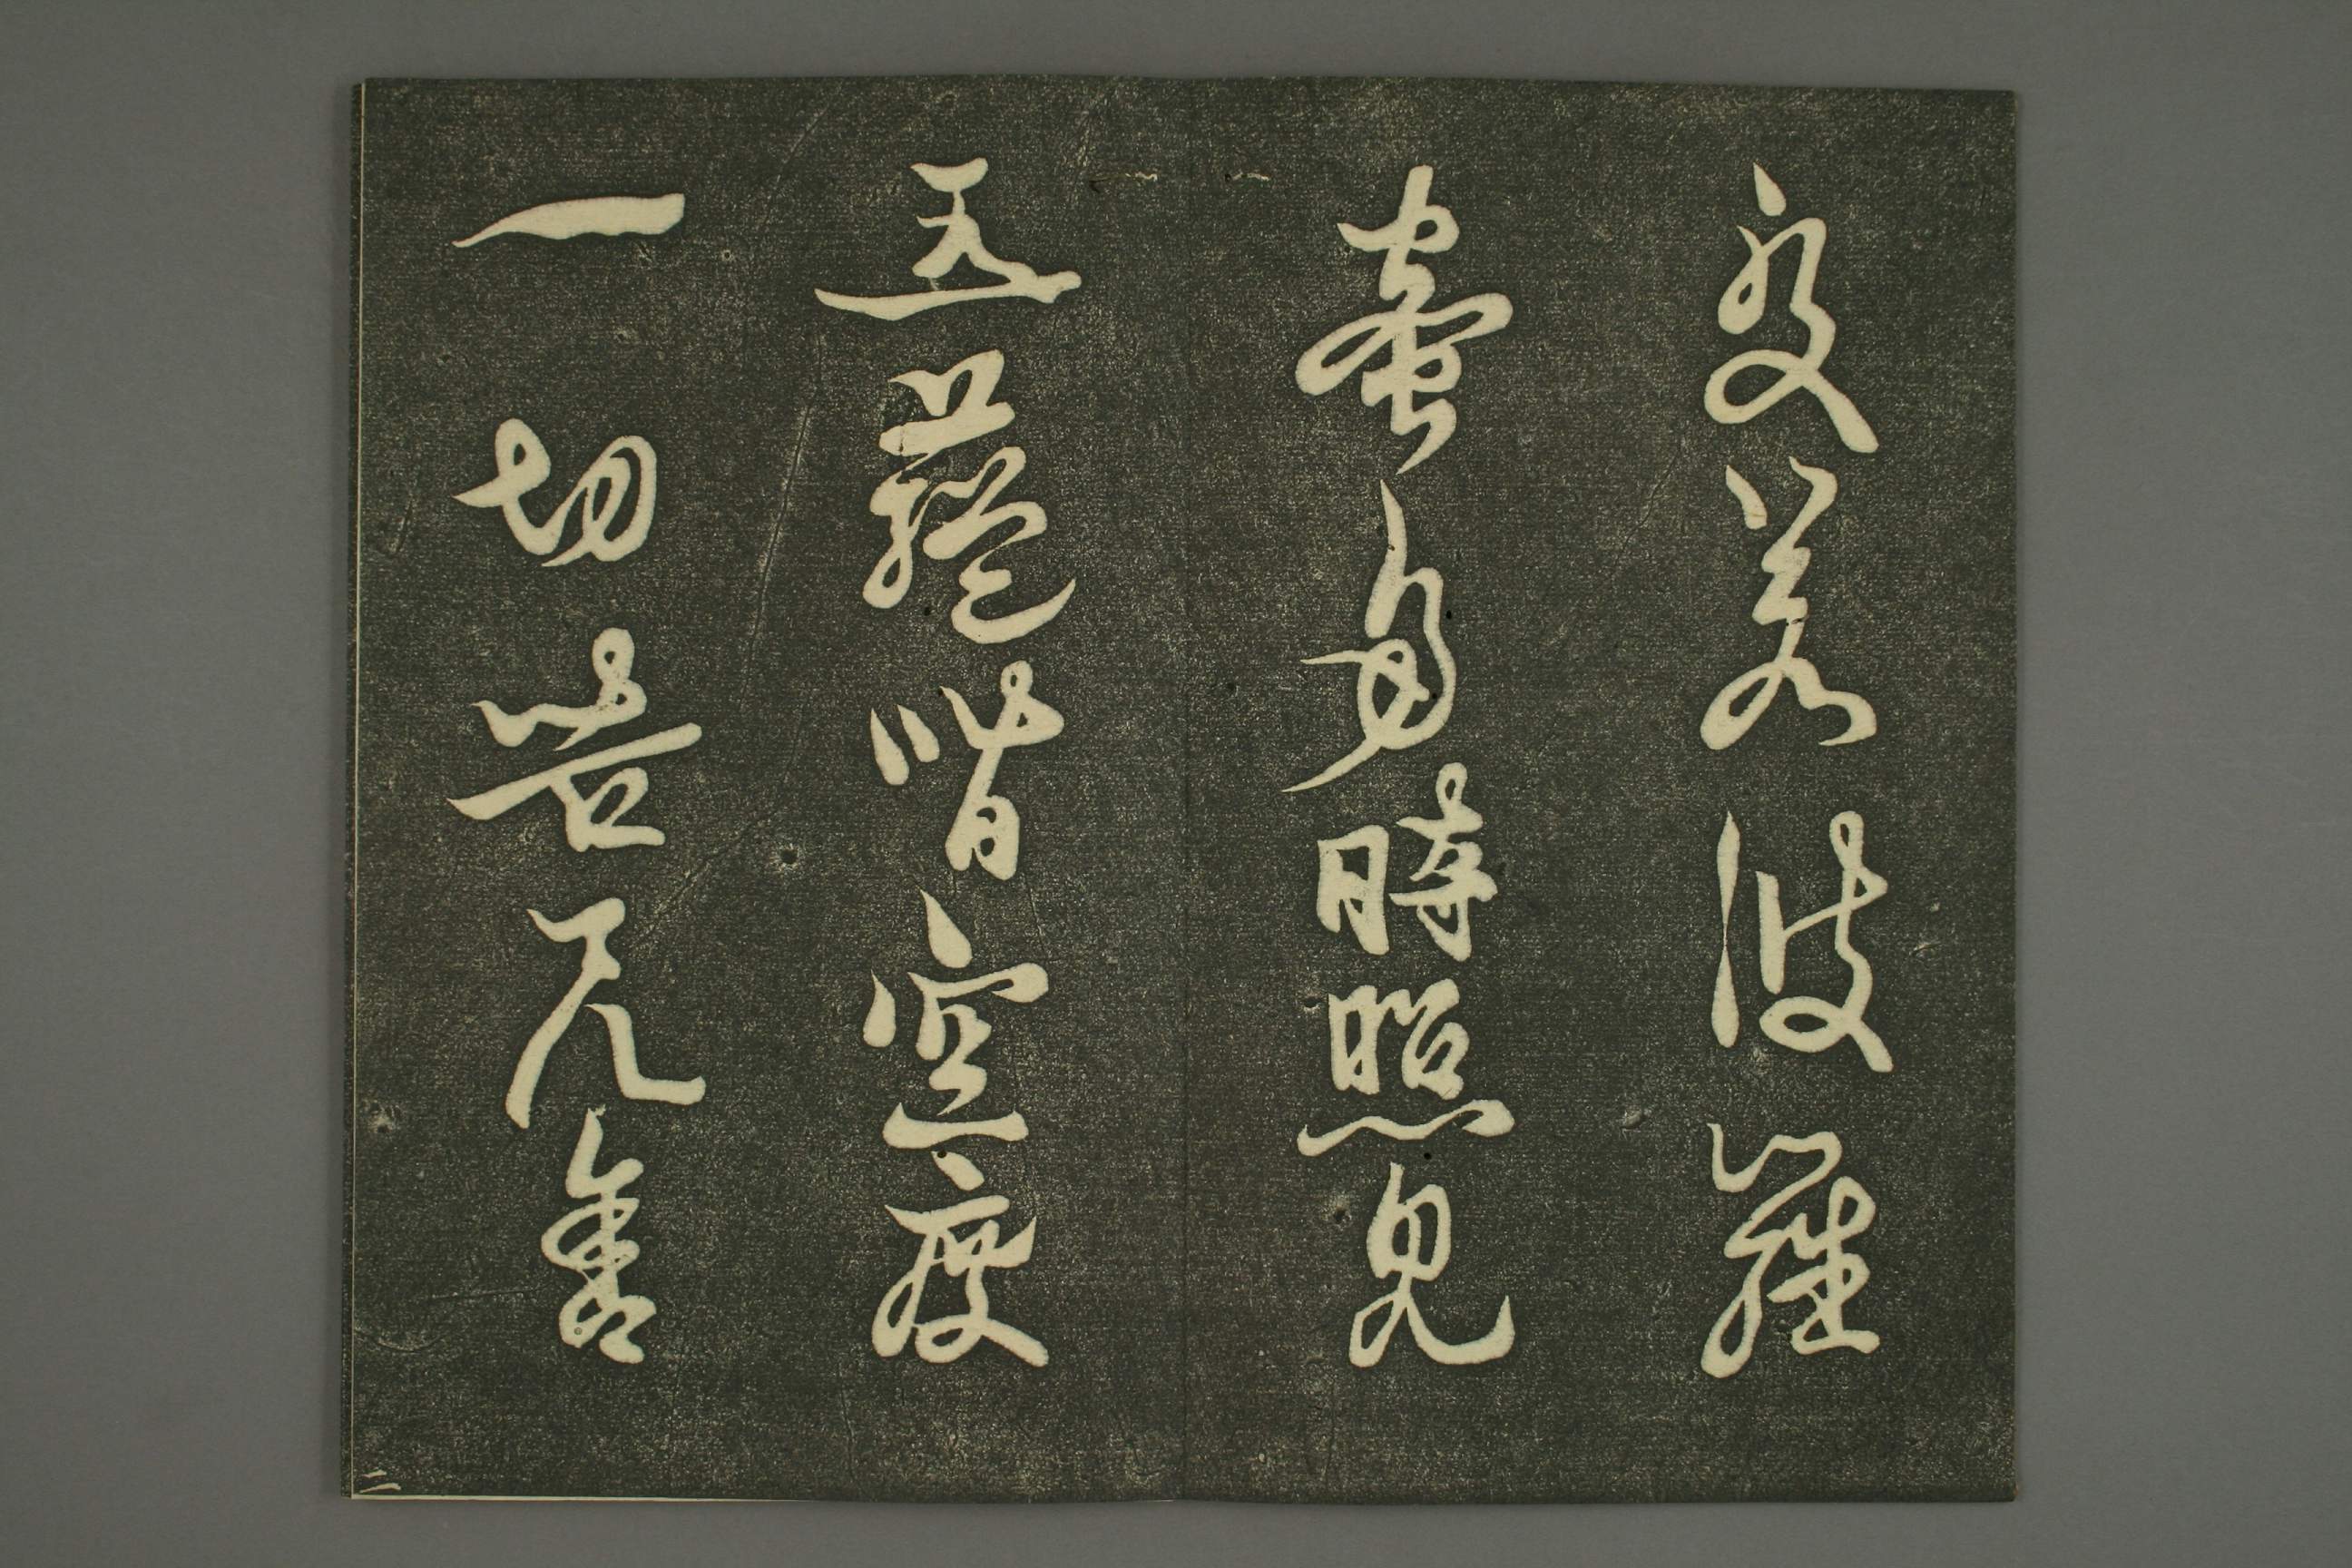 般若波羅
蜜多時照見
五蘊皆空度
一切苦厄舍
二